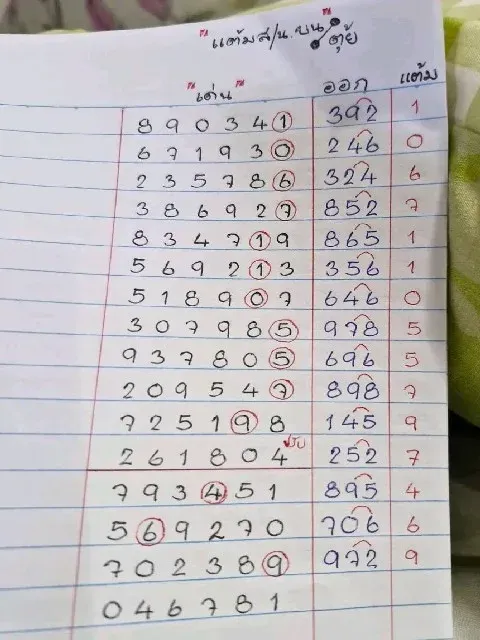 "แต้มส/น.บน" ตุ้ย
"เด่น" ออก แต้ม
8 9 0 3 4 1 392 1
6 7 1 9 3 0 246 0
2 3 5 7 8 6 324 6
3 8 6 9 2 7 852 7
8 3 4 7 1 9 865 1
5 6 9 2 1 3 356 1
5 1 8 9 0 7 646 0
3 0 7 9 8 5 978 5
9 3 7 8 0 5 696 5
2 0 9 5 4 7 898 7
7 2 5 1 9 8 145 9
2 6 1 8 0 4 252 7
7 9 3 4 5 1 895 4
5 6 9 2 7 0 706 6
7 0 2 3 8 9 972 9
0 4 6 7 8 1